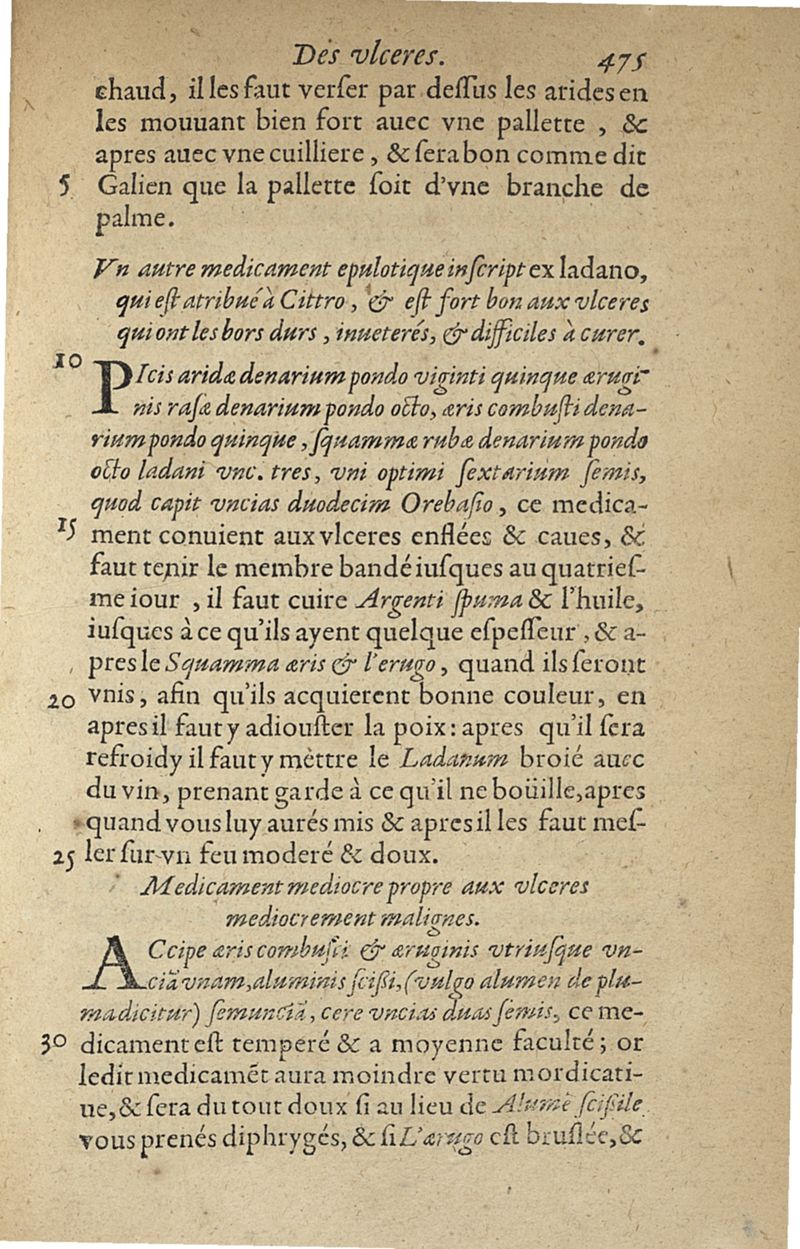 Des vlceres. 475
chaud, il les faut verſer par deſſus les arides en
les mouuant bien fort auec vne pallette , &
apres auec vne cuilliere, & ſera bon comme dit
5 Galien que la pallette ſoit d'vne branche de
palme.
Vn autre medicament epulotique inſcript ex ladano,
qui eſt atribué à Cittro, & eſt fort bon aux vlceres
qui ont les bors durs, inueterés, & difficiles à curer.
10 PIcis aridæ denarium pondo viginti quinque ærugi-
nis raſæ denarium pondo octo, æris combuſti dena-
rium pondo quinque, ſquammæ rubæ denarium pondo
octo ladani vnc. tres, vni optimi ſextarium ſemis,
quod capit vncias duodecim Orebaſio, ce medica-
15 ment conuient aux vlceres enflées & caues, &
faut tenir le membre bandé iuſques au quatrieſ-
me iour , il faut cuire Argenti ſpuma & l'huile,
iuſques à ce qu'ils ayent quelque eſpeſſeur, & a-
pres le Squamma æris & l'erugo, quand ils ſeront
20 vnis, afin qu'ils acquierent bonne couleur, en
apres il faut y adiouſter la poix: apres qu'il ſera
refroidy il faut y mèttre le Ladanum broié auec
du vin, prenant garde à ce qu'il ne boüille, apres
quand vous luy aurés mis & apres il les faut meſ-
25 ler ſur vn feu moderé & doux.
Medicament mediocre propre aux vlceres
mediocrement malignes.
ACcipe æris combuſti & æruginis vtriuſque vn-
ciã vnam, aluminis ſciſsi, (vulgo alumen de plu-
ma dicitur) ſemunciã, cere vncias duas ſemis, ce me-
30 dicament eſt temperé & a moyenne faculté; or
ledit medicamẽt aura moindre vertu mordicati-
ue, & ſera du tout doux ſi au lieu de Alumẽ ſciſsile
vous prenés diphrygés, & ſi L'ærugo eſt bruſlée, &